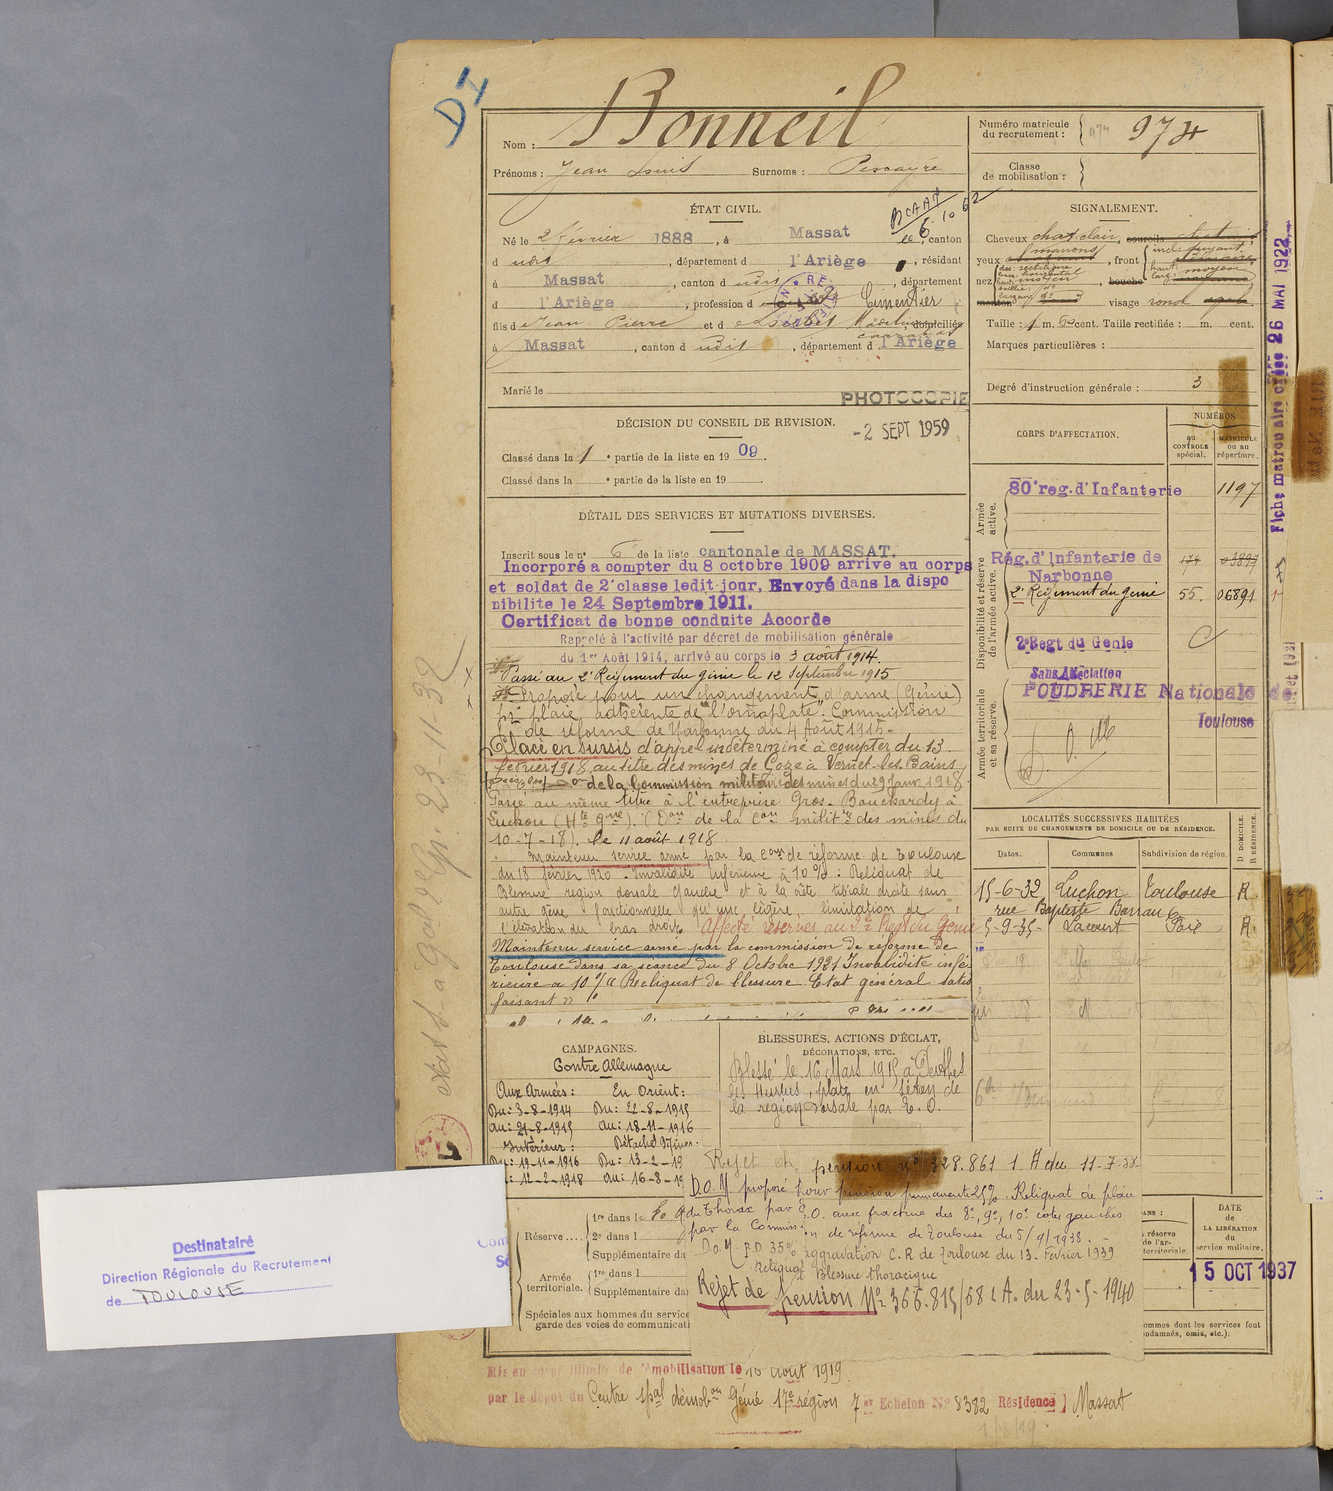 D1
Nom : Bonneil
Prénoms : Jean Louis Surnoms : Pescayré
Numéro matricule du recrutement : 974 974
Classe de mobilisation :
ÉTAT CIVIL.
BCAAT
le 6.10.62
Né le 2 février 1888, à Massat, canton
d udit, département d l'Ariège, résidant
à Massat, canton d udit, département
d l'Ariège, profession d Cimentier
fils de Jean Pierre et d domiciliés
à Massat, canton d udit, département d l'Ariège
Marié le
PHOTOCOPIE
-2 SEPT 1959
SIGNALEMENT.
Cheveux chat. clair, sourcils
yeux marrons, front incl: fuyant.
haut.
larg: moyen
nez dos: rectiligne
base: horizontal
haut: moyen
bouche
menton visage rond
Taille : 1 m. 60 cent. Taille rectifiée : m. cent.
Marques particulières :
Degré d'instruction générale : 3
DÉCISION DU CONSEIL DE REVISION.
Classé dans la 1 e partie de la liste en 1909.
Classé dans la e partie de la liste en 19 .
CORPS D'AFFECTATION.
NUMÉROS
au CONTROLE spécial.
MATRICULE ou au répertoire.
Armée active.
80e reg. d'Infanterie 1197
Disponibilité et réserve de l'armée active.
Rég. d'Infanterie de Narbonne 174 03897
2e Régiment du génie 55. 06891
2e Regt du Génie
Armée territoriale et sa réserve.
Sans Affectation
POUDRERIE Nationale de
Toulouse
Fiche matriculaire créée 26 MAI 1922
DÉTAIL DES SERVICES ET MUTATIONS DIVERSES.
Inscrit sous le n° 6 de la liste cantonale de MASSAT.
Incorporé a compter du 8 octobre 1909 arrivé au corps
et soldat de 2e classe ledit jour, Envoyé dans la dispo
nibilite le 24 Septembre 1911.
Certificat de bonne conduite Accorde
Rappelé à l'activité par décret de mobilisation générale
du 1er Août 1914, arrivé au corps le 3 août 1914.
Passé au 2e Régiment du génie le 12 Septembre 1915
Proposé pour un changement d'arme (Génie)
pr plaie adhérente de "l'omoplate". Commission
de réforme de Narbonne du 4 Août 1915-
Placé en sursis d'appel indéterminé à compter du 13
février 1918, au titre des mines de à Vernet-les-Bains
de la Commission militaire des mines du 29 Janv. 1918
Passé au même titre à l'entreprise Gros-Bouchardy à
Luchon (Hte Gne). (Don de la Con militre des mines du
10-7-18). le 11 août 1918
Maintenu service armé par la Con de réforme de Toulouse
du 18 février 1920 - Invalidité inférieure à 10 % : Reliquat de
blessure région dorsale gauche et à la crête tibiale droite sans
autre gêne fonctionnelle qu'une légère limitation de
l'élévation du bras droit. Affecté réserves au 2e Regt du Génie
Maintenu service armé par la commission de réforme de
Toulouse dans sa séance du 8 Octobre 1921 Invalidité infé
rieure a 10 % Reliquat de blessure. Etat général satis
faisant
LOCALITÉS SUCCESSIVES HABITÉES
PAR SUITE DE CHANGEMENTS DE DOMICILE OU DE RÉSIDENCE.
Dates. Communes Subdivision de région. D DOMICILE. R RÉSIDENCE.
15-6-32 Luchon Toulouse R.
rue Baptiste Barrau 6
5-9-35- Lacourt Foix R.
CAMPAGNES.
Contre Allemagne
Aux Armées : En Orient :
Du : 3-8-1914 Du : 22-8-1915
au : 21-8-1915 au : 18-11-1916
Intérieur : Détaché
Du : 19-11-1916 Du : 13-2-19
: 12-2-1918 au : 16-8-19
BLESSURES, ACTIONS D'ÉCLAT,
DÉCORATIONS, ETC.
Blessé le 16 Mars 1915 à Perthes
les Hurlus, plaie en séton de
la région dorsale par E. O.
Rejet de pension n° 328.861 1 A du 11-7-38-
D.O.M. proposé pour pension permanente 25% Reliquat de plaie
du Thorax par E.O. avec fracture des 8e, 9e, 10e côtes gauches
par la Commission de réforme de Toulouse du 5/9/1938. -
D.O.M. P.D. 35% aggravation C.R de Toulouse du 13 Février 1939
reliquat Blessure thoracique
Rejet de pension N° 366.815/68 2 A. du 23-5-1940
Réserve.... 1re dans le
2e dans l
Supplémentaire da
Armée territoriale. 1re dans l
Supplémentaire da
Spéciales aux hommes du service
garde des voies de communicati
réserve de l'armée territoriale.
DATE de LA LIBÉRATION du service militaire.
15 OCT 1937
ommes dont les services font
ondamnés, omis, etc.).
Destinataire
Direction Régionale du Recrutement
de TOULOUSE
Mis en congé illimité de démobilisation le 16 Août 1919
par le dépot du Centre spal démobon Génie 17e région 7er Echelon N° 8382 Résidence ] Massat